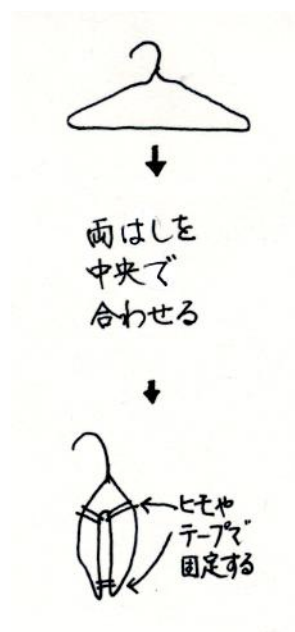 両はしを
中央で
合わせる
ヒモや
テープで
固定する